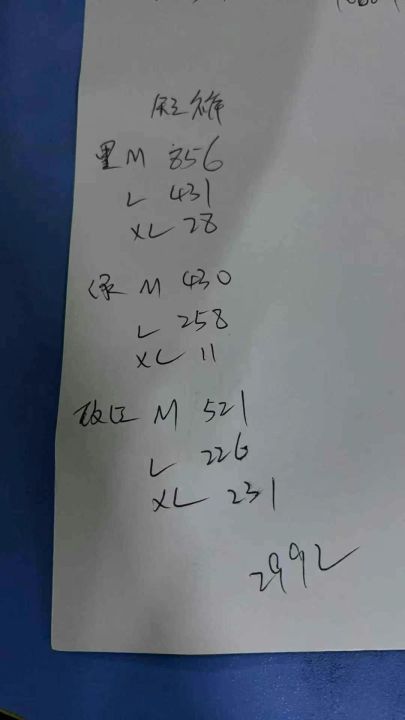 黑 M 856
L 431
XL 28
绿 M 430
L 258
XL 11
M 521
L 226
XL 231
2992